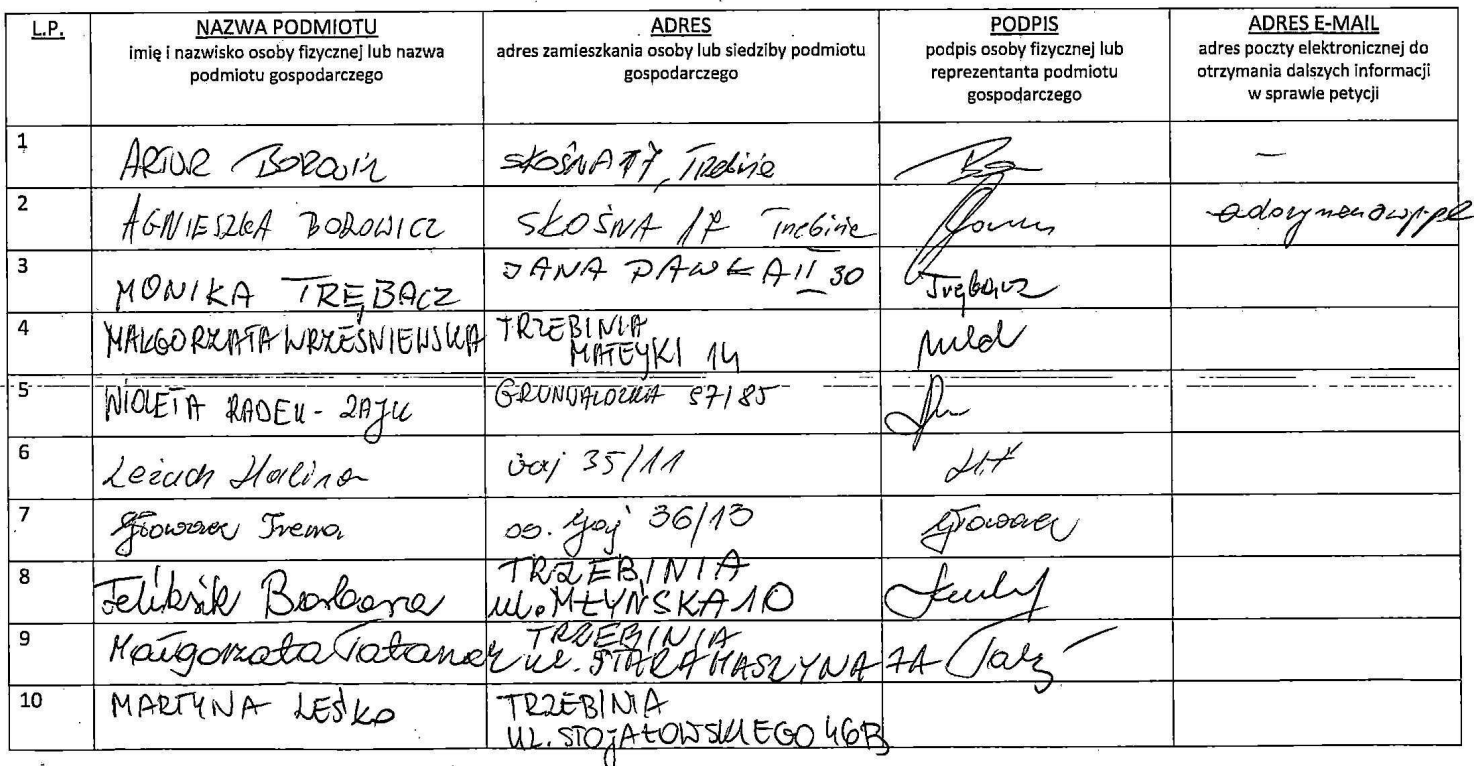 L.P. NAZWA PODMIOTU ADRES PODPIS ADRES E-MAIL
imię i nazwisko osoby fizycznej lub nazwa podmiotu gospodarczego
adres zamieszkania osoby lub siedziby podmiotu gospodarczego
podpis osoby fizycznej lub reprezentanta podmiotu gospodarczego
adres poczty elektronicznej do otrzymania dalszych informacji w sprawie petycji
1 ARTUR SKOŚNA 17, –
2 AGNIESZKA BOROWICZ SKOŚNA 17
3 MONIKA TRĘBACZ JANA PAWŁA II 30 Trębacz
4 MAŁGORZATA WRZEŚNIEWSKA TRZEBINIA
MATEJKI 14
5 WIOLETA RADEK-
6 Halina Gaj 35/11
7 Głowacz Irena os. Gaj 36/13 Głowacz
8 Feliksik Barbara TRZEBINIA
ul. MŁYŃSKA 10
9 Małgorzata TRZEBINIA
ul. STARA MASZYNA 7A
10 MARTYNA LEŚKO TRZEBINIA
UL. STOJAŁOWSKIEGO 46B